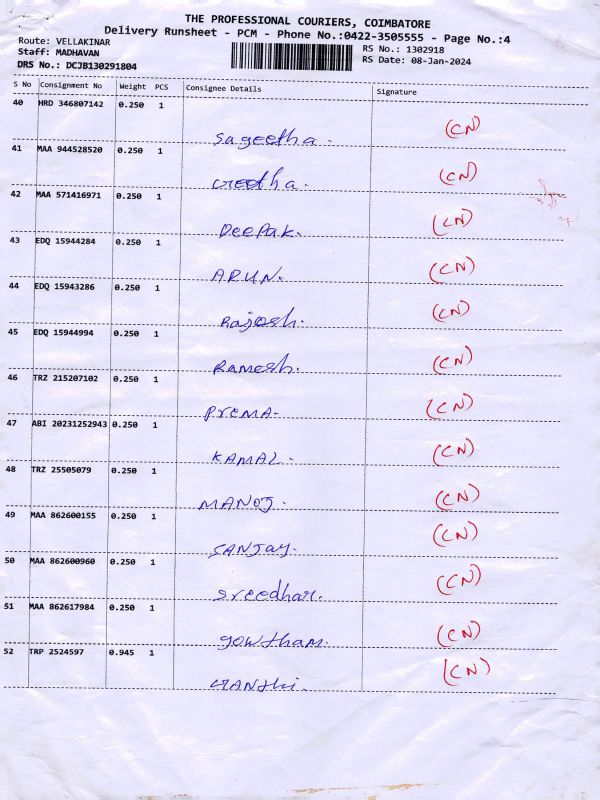 THE PROFESSIONAL COURIERS, COIMBATORE
Delivery Runsheet - PCM - Phone No.:0422-3505555 - Page No.:4
Route: VELLAKINAR RS No.: 1302918
Staff: MADHAVAN RS Date: 08-Jan-2024
DRS No.: DCJB130291804
S No Consignment No Weight PCS Consignee Details Signature
40 HRD 346807142 0.250 1
Sageetha. (CN)
41 MAA 944528520 0.250 1
Geetha. (CN)
42 MAA 571416971 0.250 1
Deepak. (CN)
43 EDQ 15944284 0.250 1
ARUN. (CN)
44 EDQ 15943286 0.250 1
Rajesh. (CN)
45 EDQ 15944994 0.250 1
Ramesh. (CN)
46 TRZ 215207102 0.250 1
PremA. (CN)
47 ABI 20231252943 0.250 1
KAMAL. (CN)
48 TRZ 25505079 0.250 1
MANOJ. (CN)
49 MAA 862600155 0.250 1
SANJAY. (CN)
50 MAA 862600960 0.250 1
Sreedhar. (CN)
51 MAA 862617984 0.250 1
gowtham. (CN)
52 TRP 2524597 0.945 1
(CN)